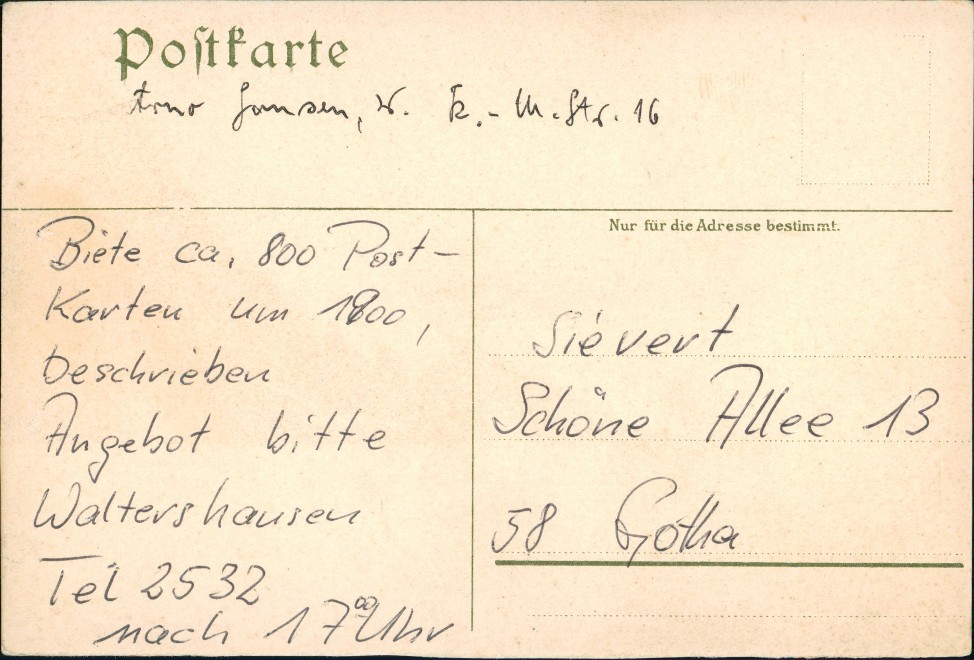 Postkarte
Arno Jansen, W. K.-M.-Str. 16
Nur für die Adresse bestimmt.
Biete ca. 800 Post-
Karten um 1900,
beschrieben
Angebot bitte
Waltershausen
Tel 2532
nach 17⁰⁰ Uhr
Sievert
Schöne Allee 13
58 Gotha